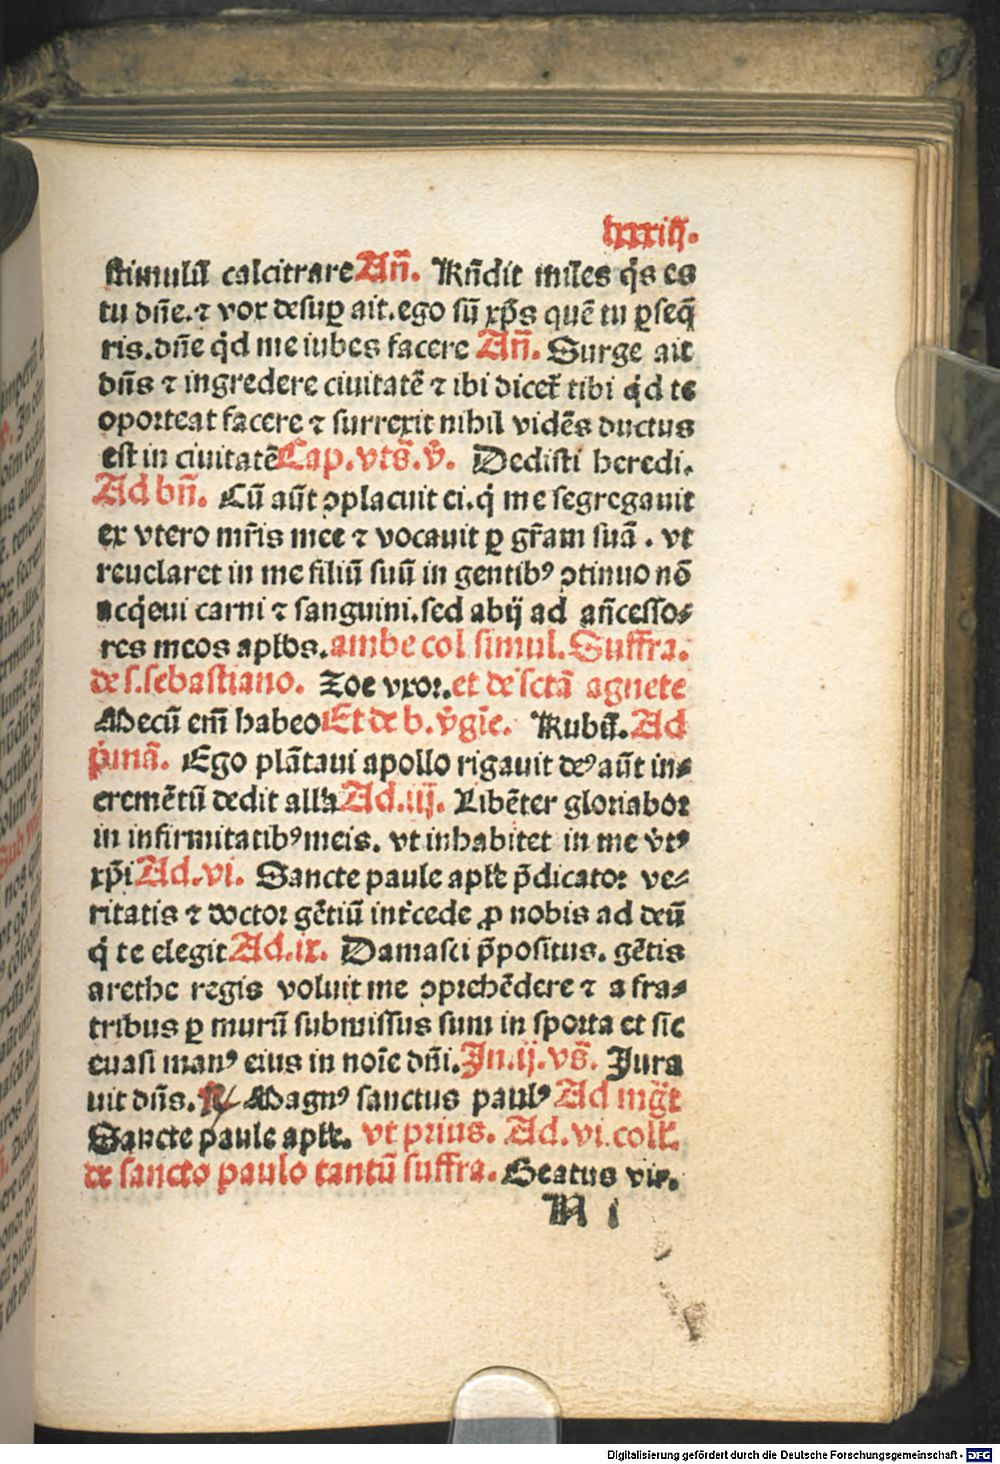 lxxxiij.
stimulū calcitrare Añ. Rñdit miles q̇s es
tu dñe. ⁊ vox desuꝑ ait. ego sū xp̄s quē tu ꝑseq̄
ris. dñe q̇d me iubes facere Añ. Surge ait
dñs ⁊ ingredere ciuitatē ⁊ ibi dicet̄ tibi q̇d te
oporteat facere ⁊ surrexit nihil vidēs ductus
est in ciuitatē Cap. vts̄. v̇. Dedisti heredi.
Ad bñ. Cū aūt ꝯplacuit ei. q̇ me segregauit
ex vtero mr̄is mee ⁊ vocauit ꝑ gr̄am suā. vt
reuelaret in me filiū suū in gentibꝰ ꝯtinuo nō
acq̇eui carni ⁊ sanguini. sed abij ad añcesso⸗
res meos apl̄os. ambe col simul. Suffra.
de s. sebastiano. Zoe vxor. et de sctā agnete
Mecū em̄ habeo Et de b. v̇gīe. Rubū. Ad
ṗmā. Ego plātaui apollo rigauit deꝰ aūt in⸗
cremētū dedit all'a Ad. iij. Libēter gloriabor
in infirmitatibꝰ meis. vt inhabitet in me v̇tꝰ
xp̄i Ad. vi. Sancte paule apl̄e p̄dicator ve⸗
ritatis ⁊ doctor gētiū int̄cede ꝓ nobis ad deū
q̇ te elegit Ad. ix. Damasci p̄positus. gētis
arethe regis voluit me ꝯprehēdere ⁊ a fra⸗
tribus ꝑ murū submissus sum in sporta et sic
euasi manꝰ eius in noīe dñi. In. ij. vs̄. Jura
uit dñs. ℟ Magnꝰ sanctus paulꝰ Ad mḡt
Sancte paule apl̄e. vt prius. Ad. vi. coll̄.
de sancto paulo tantū suffra. Beatus vir.
N i
Digitalisierung gefördert durch die Deutsche Forschungsgemeinschaft - DFG